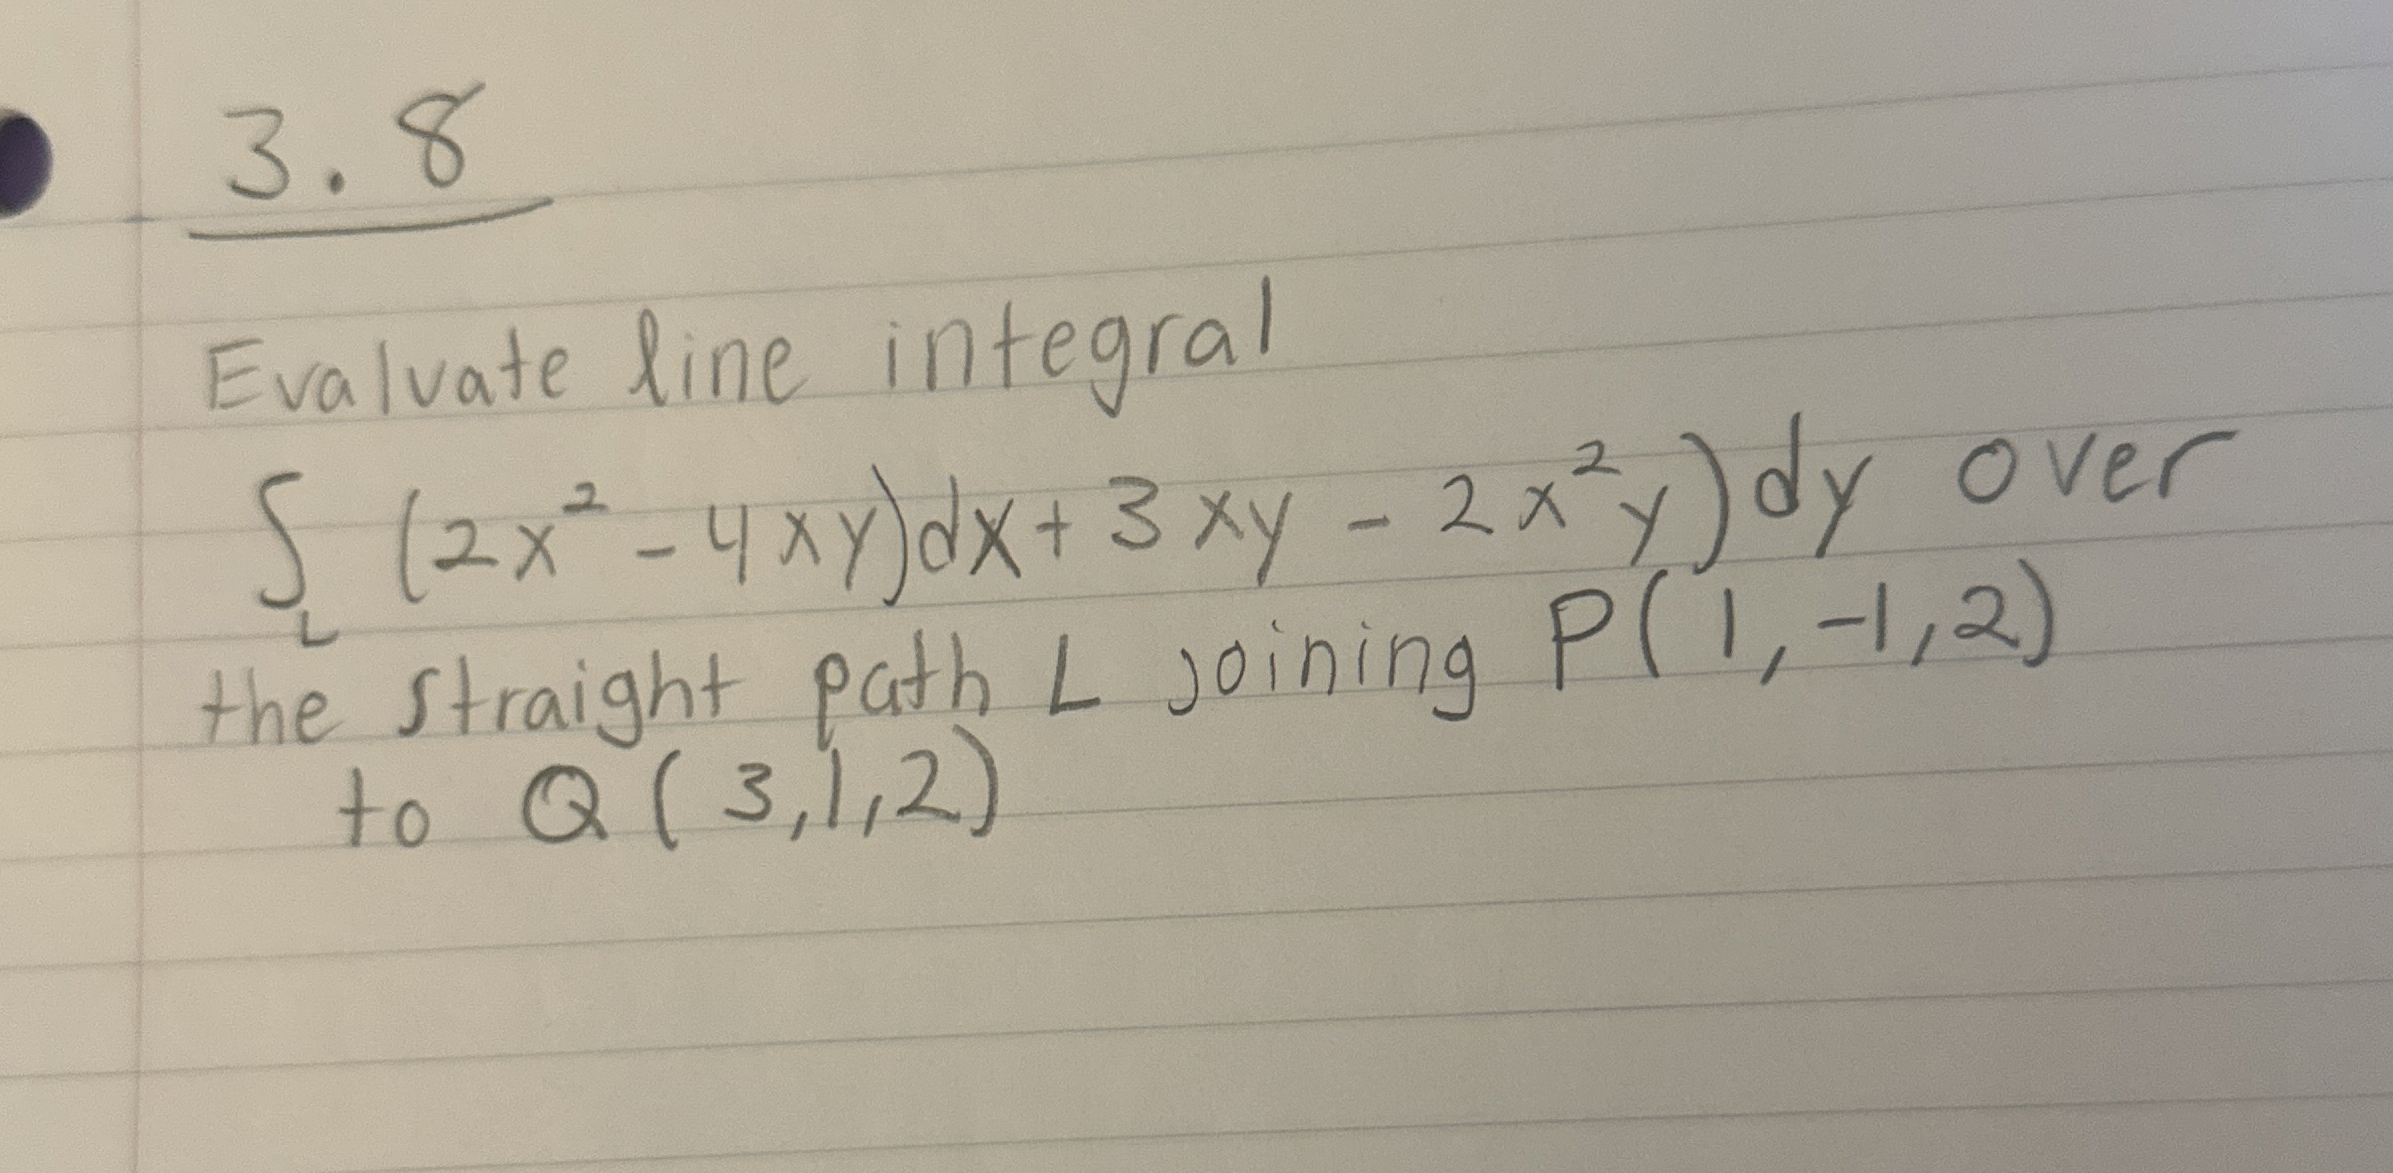 3.8
Evaluate line integral
∫_L (2x² - 4xy)dx + 3xy - 2x²y)dy over
the straight path L joining P(1,-1,2)
to Q(3,1,2)